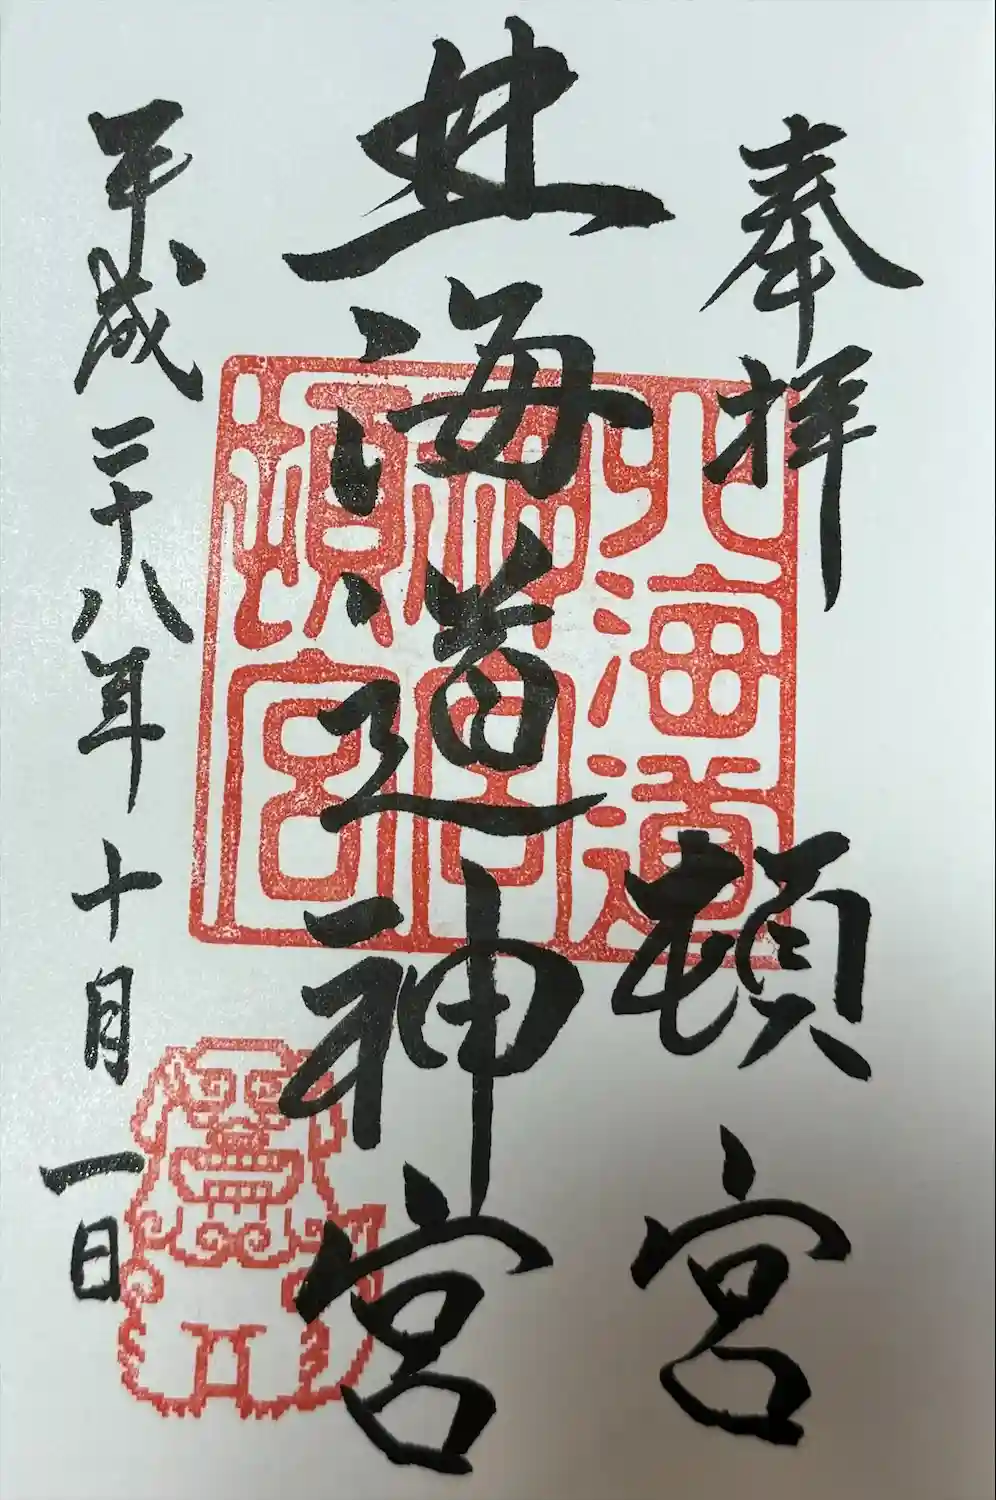 奉拝
北海道神宮
頓宮
平成二十八年十月一日
北海道
神宮
頓宮